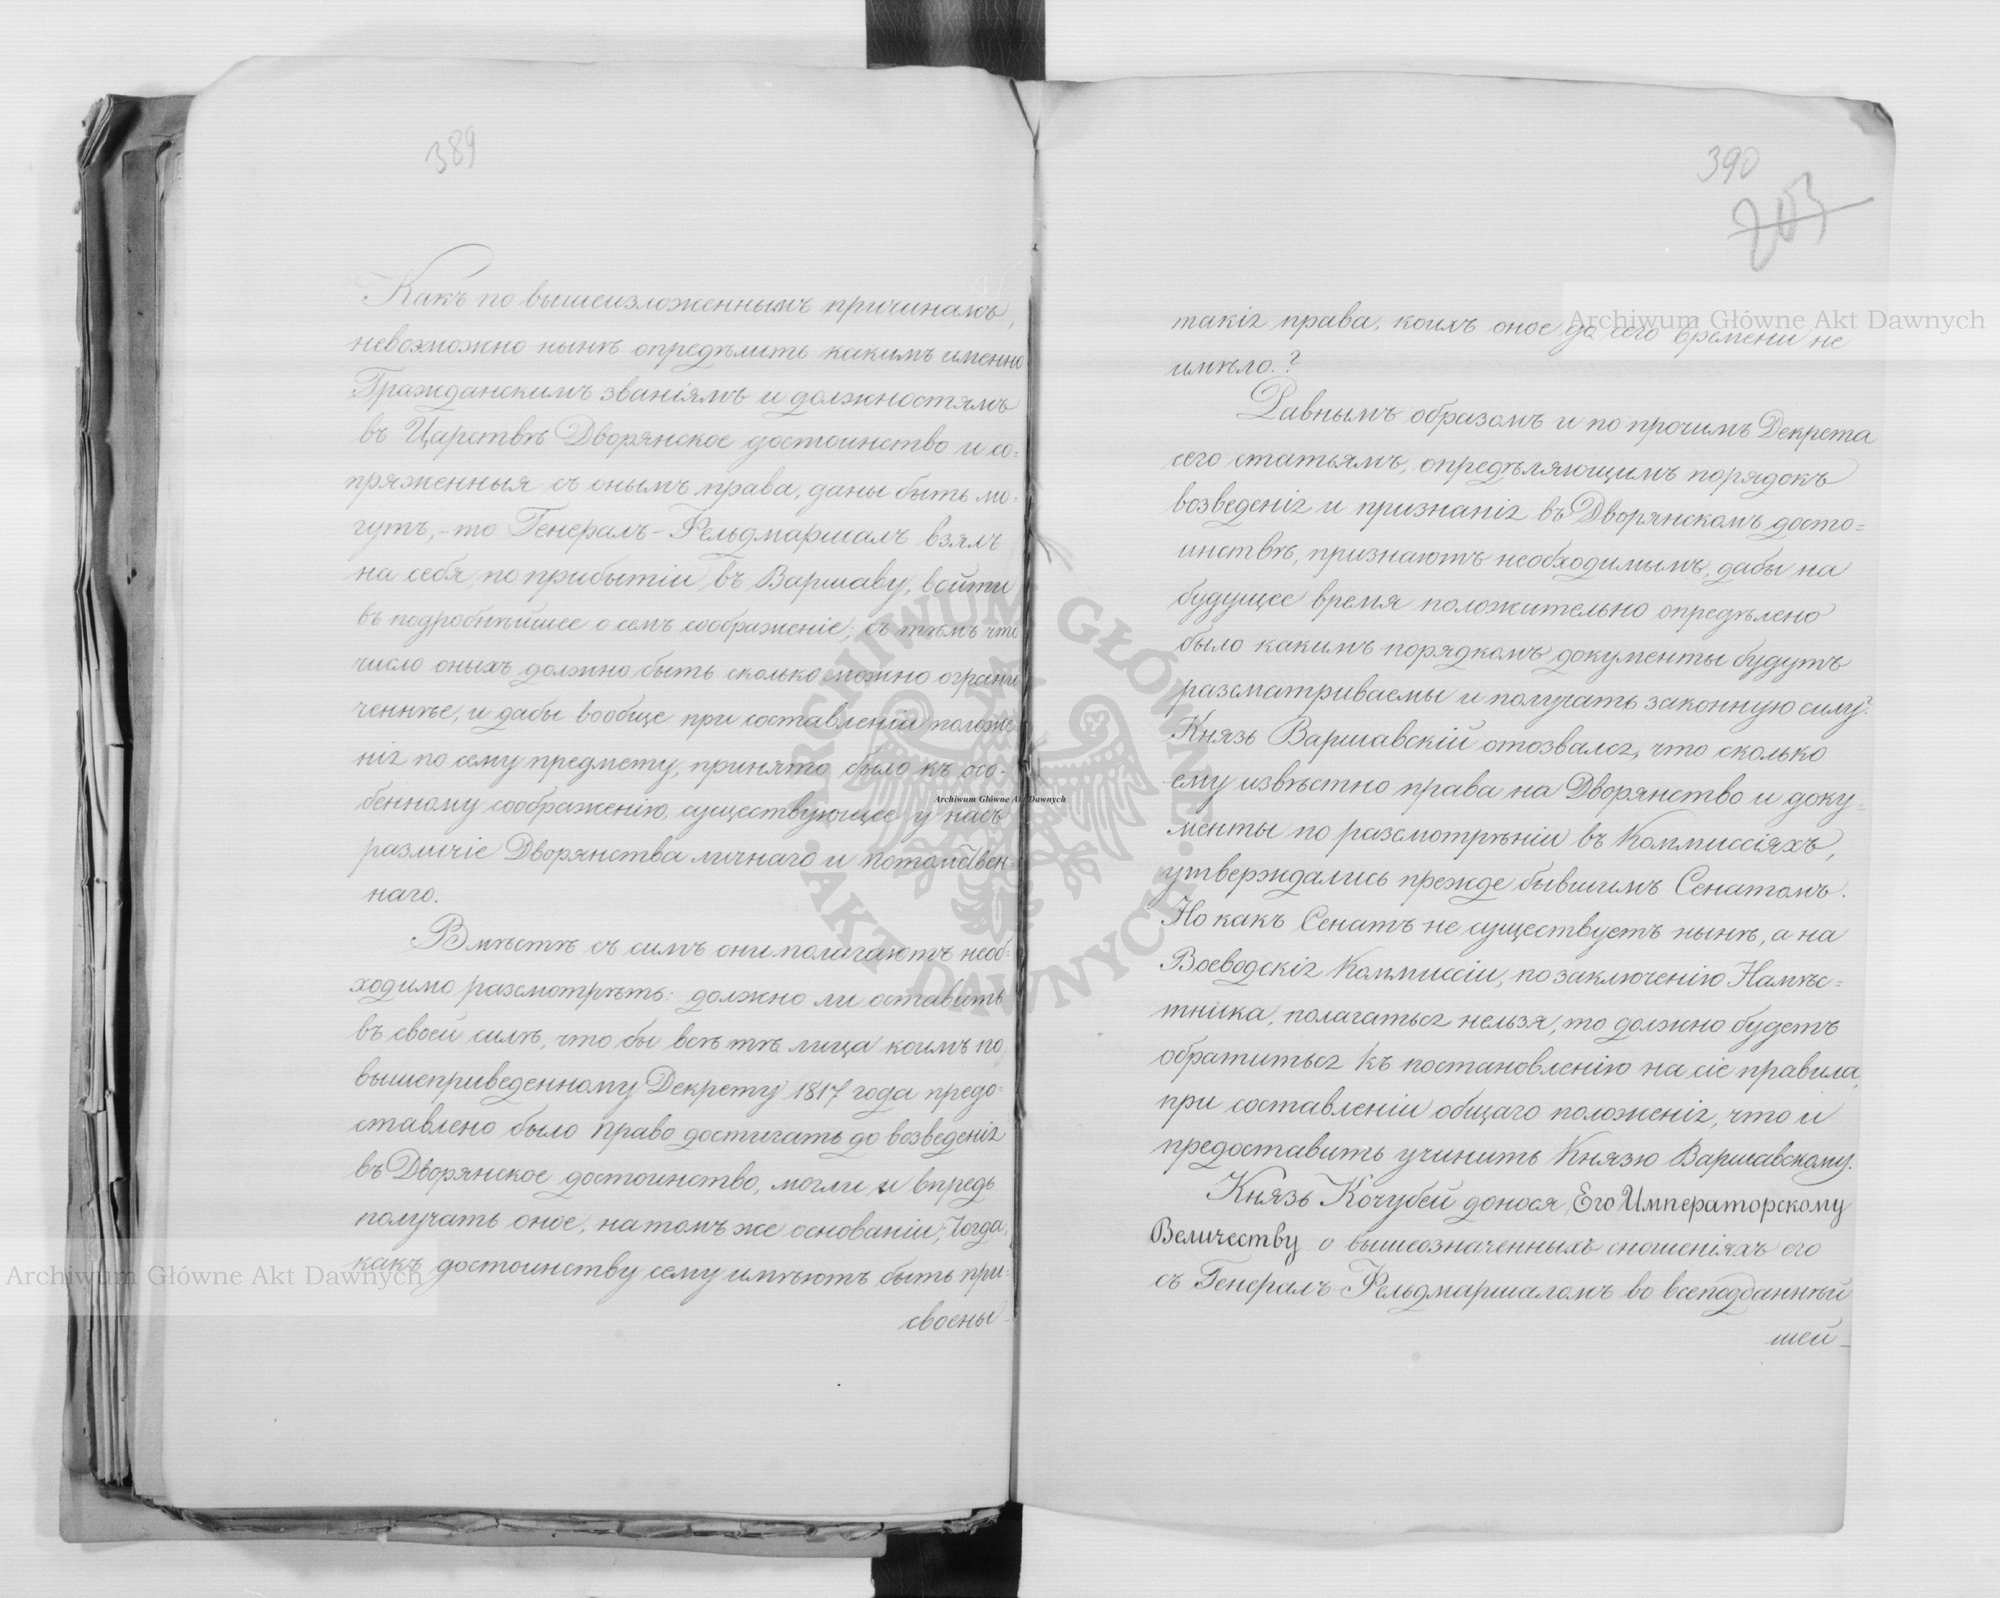 389
Какъ по вышеизложеннымъ причинамъ,
невозможно нынѣ опредѣлить какимъ именно
Гражданскимъ званіямъ и должностямъ
въ Царствѣ Дворянское достоинство и со=
пряженныя съ онымъ права, даны быть мо=
гутъ,-то Генералъ-Фельдмаршалъ взялъ
на себя, по прибытіи въ Варшаву, войти
въ подробнѣйшее о семъ соображеніе; съ тѣмъ что
число оныхъ должно быть сколько можно ограни
ченнѣе, и дабы вообще при составленіи положе
нія по сему предмету, принято было къ осо-
бенному соображенію, существующее у насъ
различіе Дворянства личнаго и потомствен
наго.
Вмѣстѣ съ симъ они полагаютъ необ-
ходимо разсмотрѣть: должно ли оставить
въ своей силѣ, что бы всѣ тѣ лица коимъ по
вышеприведенному Декрету 1817 года предо=
ставлено было право достигать до возведенія
въ Дворянское достоинство, могли и впредь
получать оное, на томъ же основаніи, тогда,
какъ достоинству сему имѣютъ быть при-
своены
390
203
такія права, коимъ оное до сего времени не
имѣло.?
Равнымъ образомъ и по прочимъ Декрета
сего статьямъ, опредѣляющимъ порядокъ
возведенія и признанія въ Дворянскомъ досто=
инствѣ, признаютъ необходимымъ, дабы на
будущее время положительно опредѣлено
было какимъ порядкомъ документы будутъ
разсматриваемы и получать законную силу?
Князь Варшавскій отозвался, что сколько
ему извѣстно права на Дворянство и доку=
менты по разсмотрѣніи въ Коммиссіяхъ,
утверждались прежде бывшимъ Сенатомъ.
Но какъ Сенатъ не существуетъ нынѣ, а на
Воеводскія Коммиссіи, по заключенію Намѣс=
тника, полагаться нельзя, то должно будетъ
обратиться къ постановленію на сіе правила,
при составленіи общаго положенія, что и
предоставить учинить Князю Варшавскому.
Князь Кочубей донося, Его Императорскому
Величеству о вышеозначенныхъ сношеніяхъ его
съ Генералъ-Фельдмаршаломъ во всеподданнѣй
шей-
Archiwum Główne Akt Dawnych
Archiwum Główne Akt Dawnych
Archiwum Główne Akt Dawnych
ARCHIWUM GŁÓWNE
AKT DAWNYCH